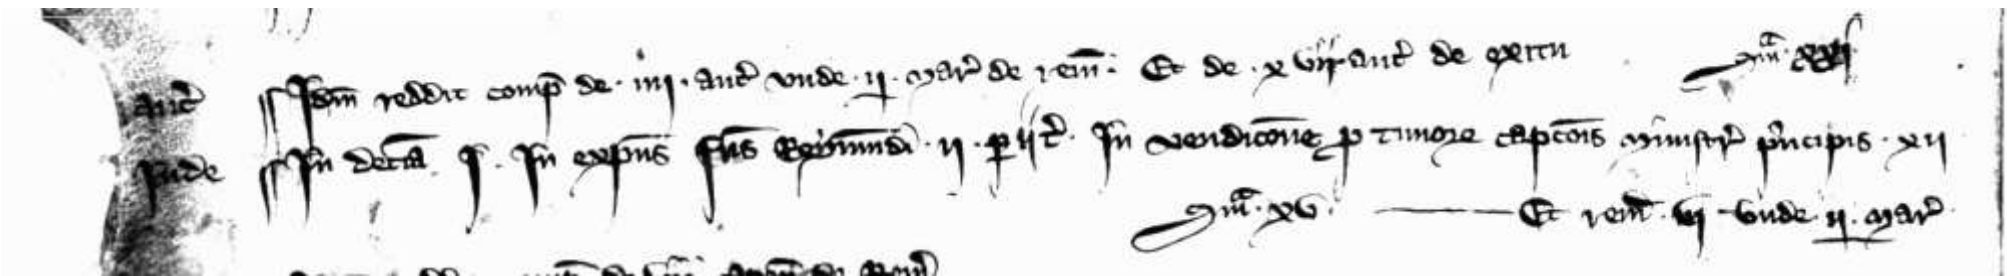 auc̄ Idm̄ reddit comp̄ de . iiii . auc̄ vnde . ii . mar̄ de rem̄ . Et de . xvii auc̄ de exitu Sm̄a . xxi
Inde In decīa . I . In expn̄s ffr̄is Reymundi . ii . p̱ ii t̄ . In vendicōne p̱ timore capcōis ministr̄ p̄ncipis . xii
Sm̄a . xv . Et rem̄ . vi . vnde . ii . mar̄